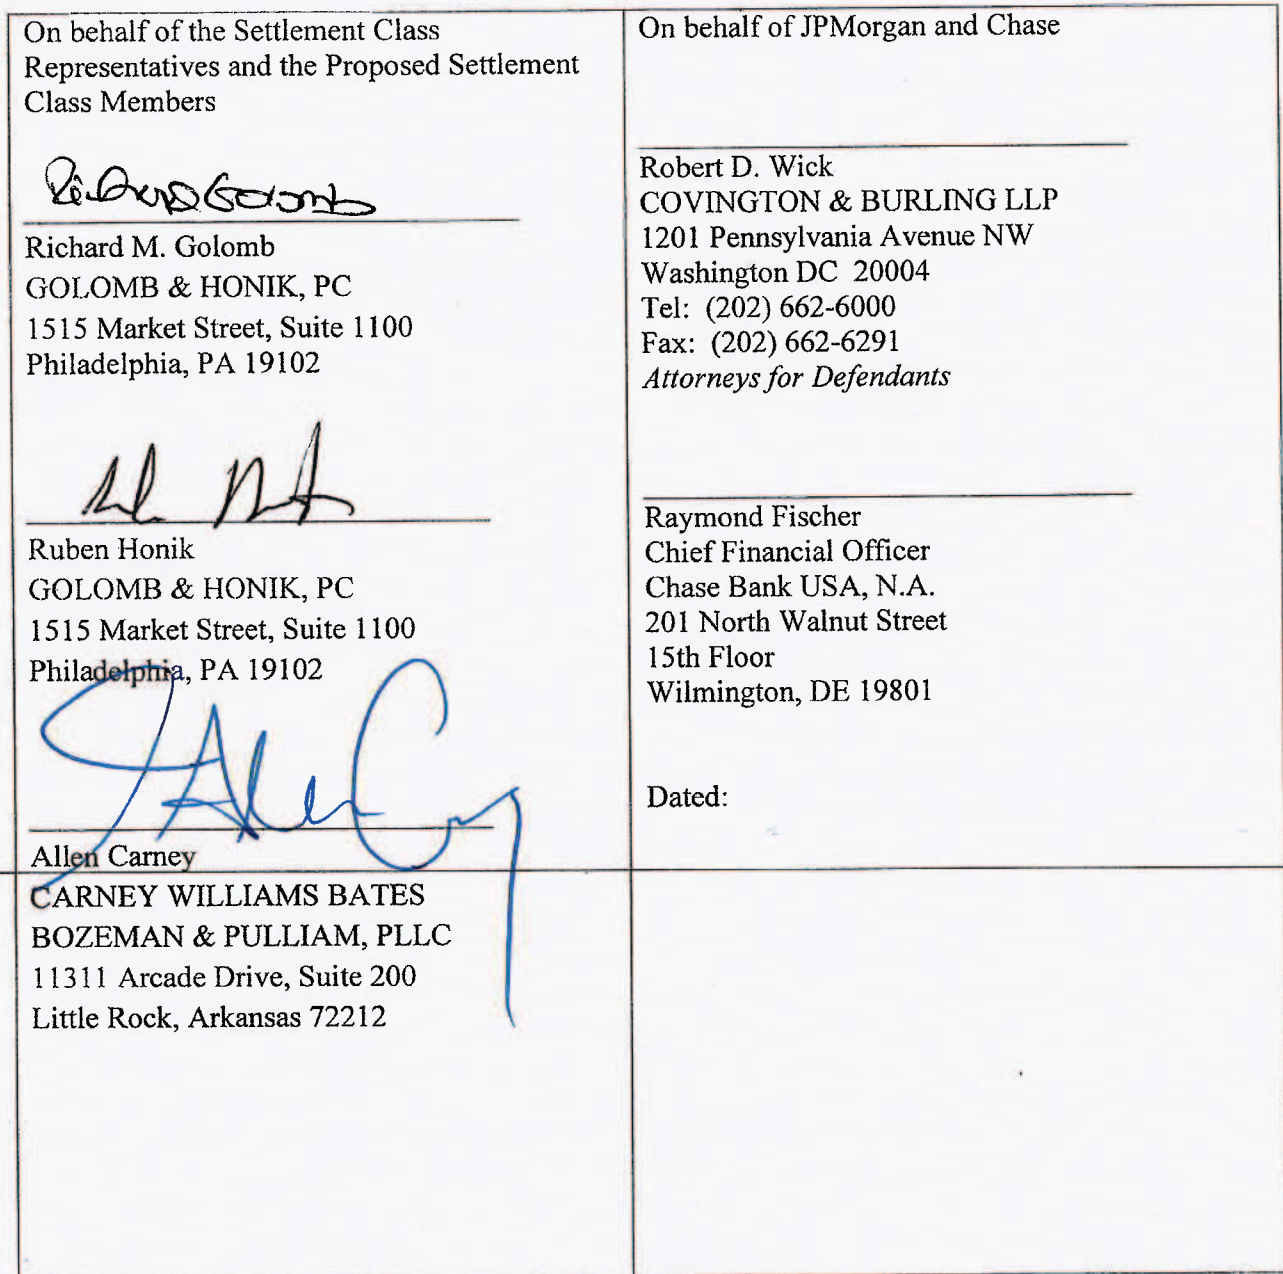 On behalf of the Settlement Class
Representatives and the Proposed Settlement
Class Members
Richard Golomb
Richard M. Golomb
GOLOMB & HONIK, PC
1515 Market Street, Suite 1100
Philadelphia, PA 19102
Ruben Honik
GOLOMB & HONIK, PC
1515 Market Street, Suite 1100
Philadelphia, PA 19102
Allen Carney
CARNEY WILLIAMS BATES
BOZEMAN & PULLIAM, PLLC
11311 Arcade Drive, Suite 200
Little Rock, Arkansas 72212
On behalf of JPMorgan and Chase
Robert D. Wick
COVINGTON & BURLING LLP
1201 Pennsylvania Avenue NW
Washington DC 20004
Tel: (202) 662-6000
Fax: (202) 662-6291
Attorneys for Defendants
Raymond Fischer
Chief Financial Officer
Chase Bank USA, N.A.
201 North Walnut Street
15th Floor
Wilmington, DE 19801
Dated: